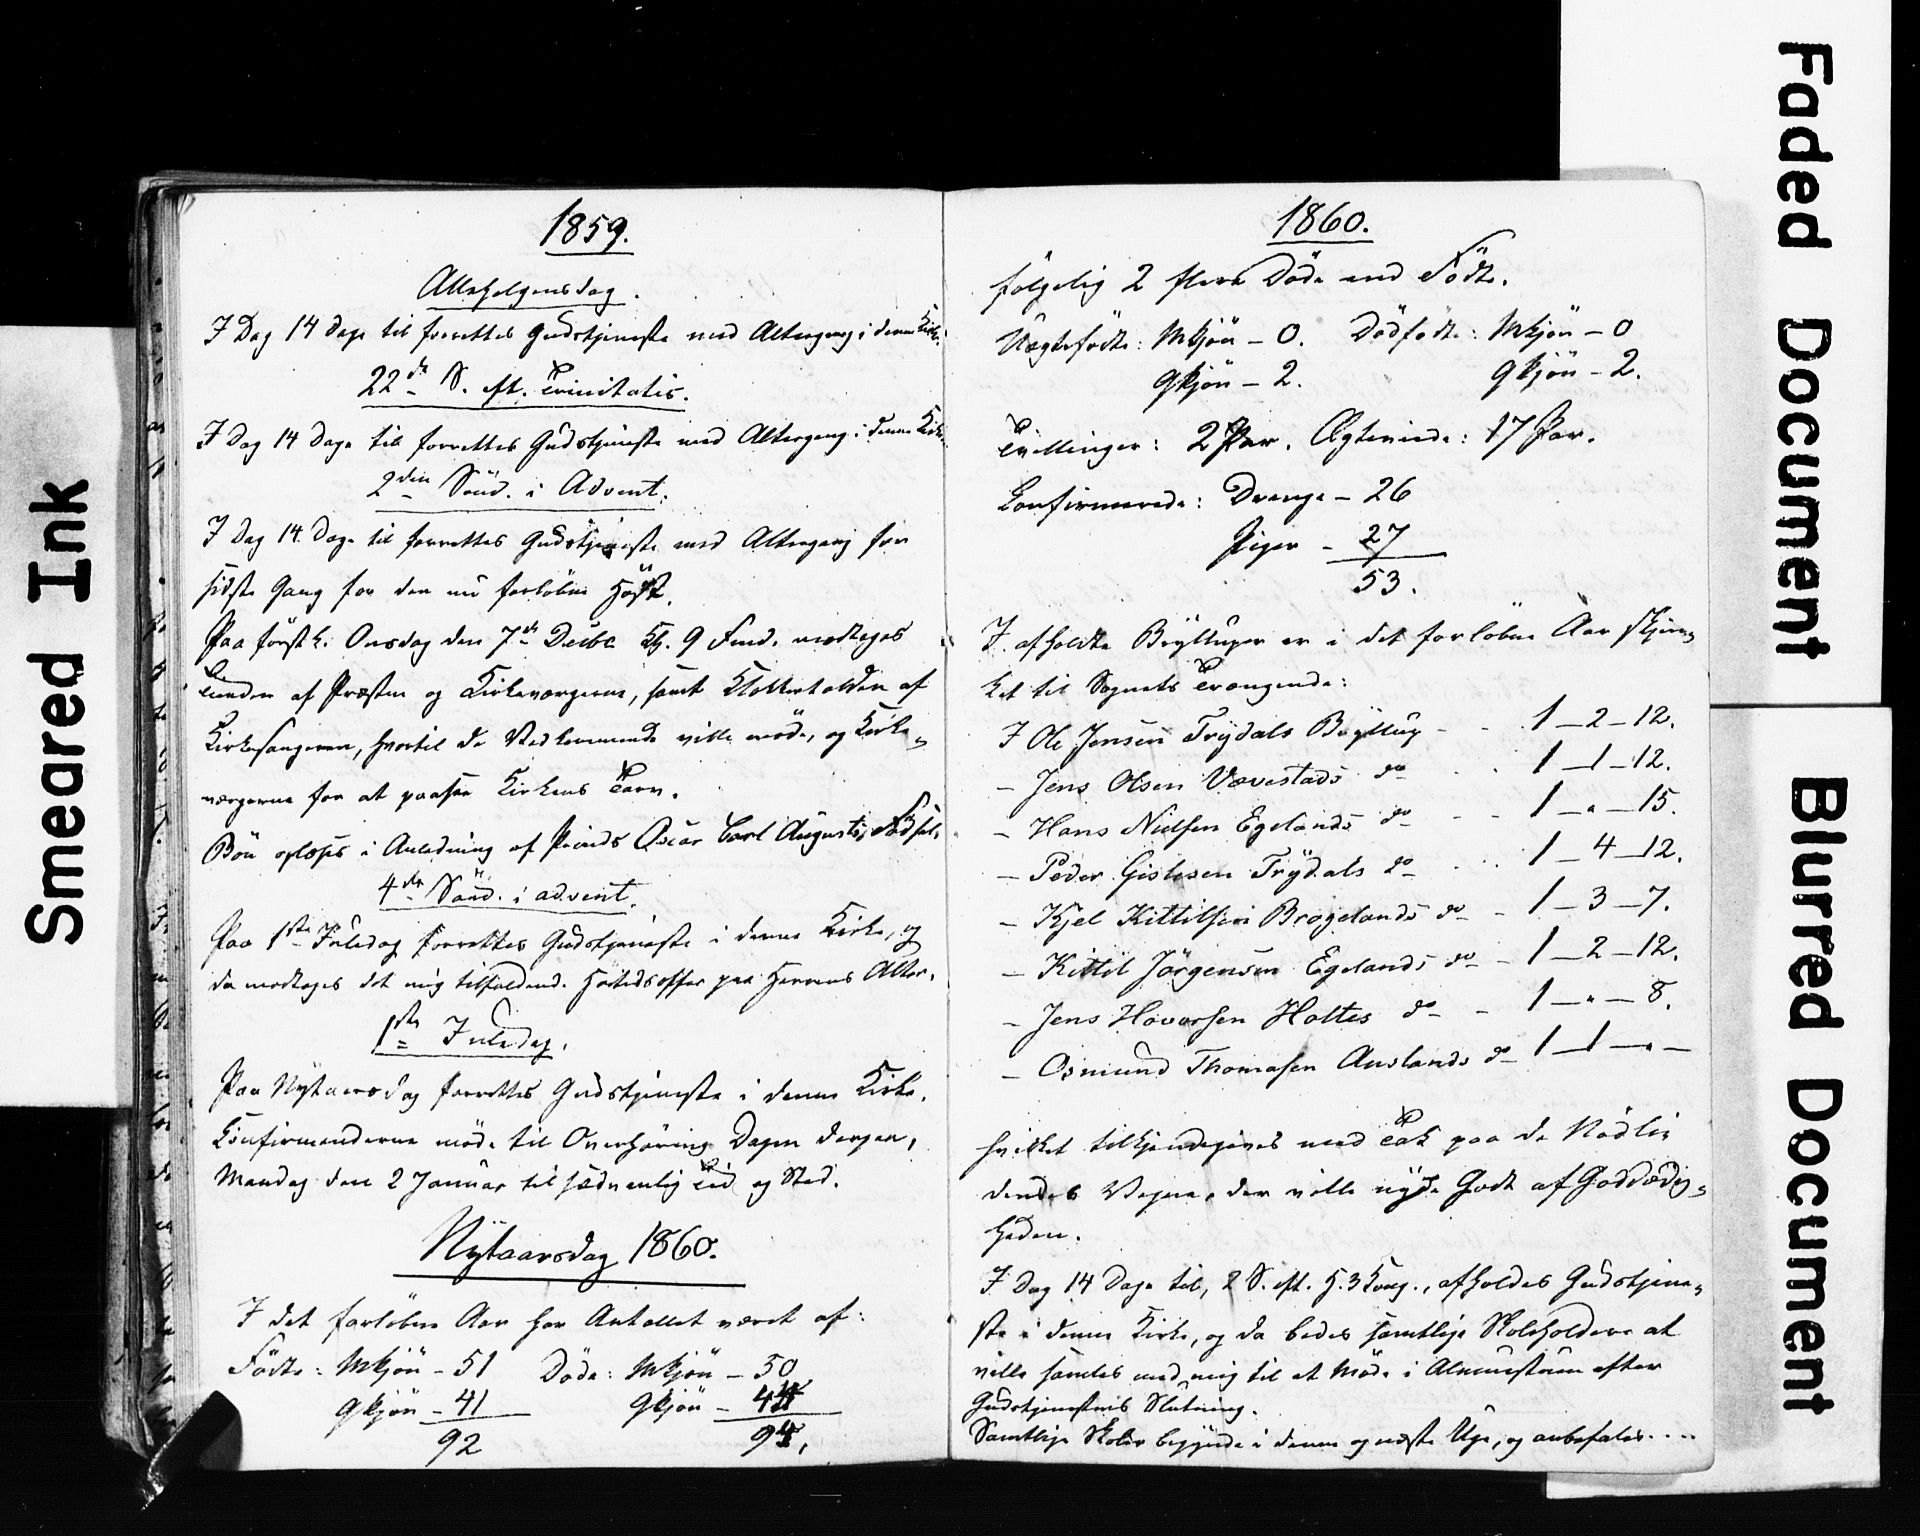 Smeared Ink
1859.
Allehelgensdag.
I Dag 14 Dage til forrettes Gudstjeneste med Altergang i denne Kirke.
22de S. eft. Trinitatis.
I Dag 14 Dage til forrettes Gudstjeneste med Altergang i denne Kirke
2den Sönd. i Advent.
I Dag 14 Dage til forrettes Gudstjeneste med Altergang for
sidste Gang for den nu forløbne Høst.
Paa förstk. Onsdag den 7de Decbr. Kl. 9 Fmd. modtages
Tienden af Præsten og Kirkeværgerne, samt Klokkertolden af
Kirkesangeren, hvortil de Vedkommende ville möde, og Kirke-
værgerne for at paasee Kirkens Tarv.
Bön oplæses i Anledning af Prinds Oscar Carl Augusts Födsel.
4de Sönd. i advent.
Paa 1ste Juledag forrettes Gudstjeneste i denne Kirke, og
da modtages det mig tilfaldend. Høitidsoffer paa Herrens Alter.
1ste Juledag.
Paa Nytaarsdag forrettes Gudstjeneste i denne Kirke.
Confirmanderne möde til Overhøring Dagen derpaa,
Mandag den 2 Januar til sædvanlig Tid og Sted.
Nytaarsdag 1860.
I det forløbne Aar har Antallet været af:
Födte: Mkjön - 51 Döde: Mkjön - 50
Qkjön - 41 Qkjön - 44
92 94.
1860.
fölgelig 2 flere Döde end Födte.
Uægtefödte: Mkjön - 0. Dödfödte: Mkjön - 0
Qkjön - 2. Qkjön - 2.
Tvillinger: 2 Par. Ægteviede: 17 Par.
Confirmerede: Drenge - 26
Piger - 27
53.
I afholdte Bryllupper er i det forløbne Aar skjæn-
ket til Sognets Trængende:
I Ole Jensen Trydals Bryllup - - 1 - 2 - 12.
- Jens Olsen Vævestads do 1 - 1 - 12.
- Hans Nielsen Egelands do - - 1 - " - 15.
- Peder Gislesen Trydals do 1 - 4 - 12.
- Kjel Kittilsen Brøgelands do - 1 - 3 - 7.
- Kittil Jörgensen Egelands do - 1 - 2 - 12.
- Jens Hovorsen Holtes do - 1 - " - 8.
- Osmund Thomasen Auslands do 1 - 1 - " -
hvilket tilkjendegives med Tak paa de Nödli-
dendes Vegne, der ville nyde Godt af Godædig-
heden.
I Dag 14 Dage til, 2 S. eft. H. 3 Kong., afholdes Gudstjene-
ste i denne Kirke, og da bedes samtlige Skoleholdere at
ville samles med mig til et Möde i Almuestuen efter
Gudstjenestens Slutning.
Samtlige Skoler begynde i denne og næste Uge, og anbefales....
Faded Document
Blurred Document